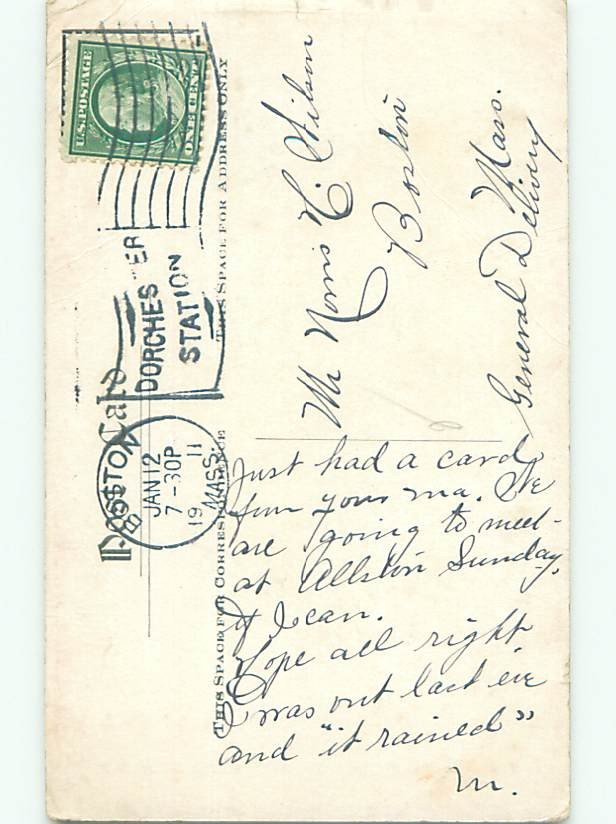 U.S. POSTAGE
ONE CENT
DORCHESTER
STATION
BOSTON
JAN 12
7-30P
19 11
MASS.
Post Card
THIS SPACE FOR CORRESPONDENCE
THIS SPACE FOR ADDRESS ONLY
Mr Norris C. Wilson
Boston
Mass.
General Delivery
Just had a card
from your ma. We
are going to meet
at Allston Sunday,
if I can.
Hope all right
I was out last eve
and "it rained"
M.